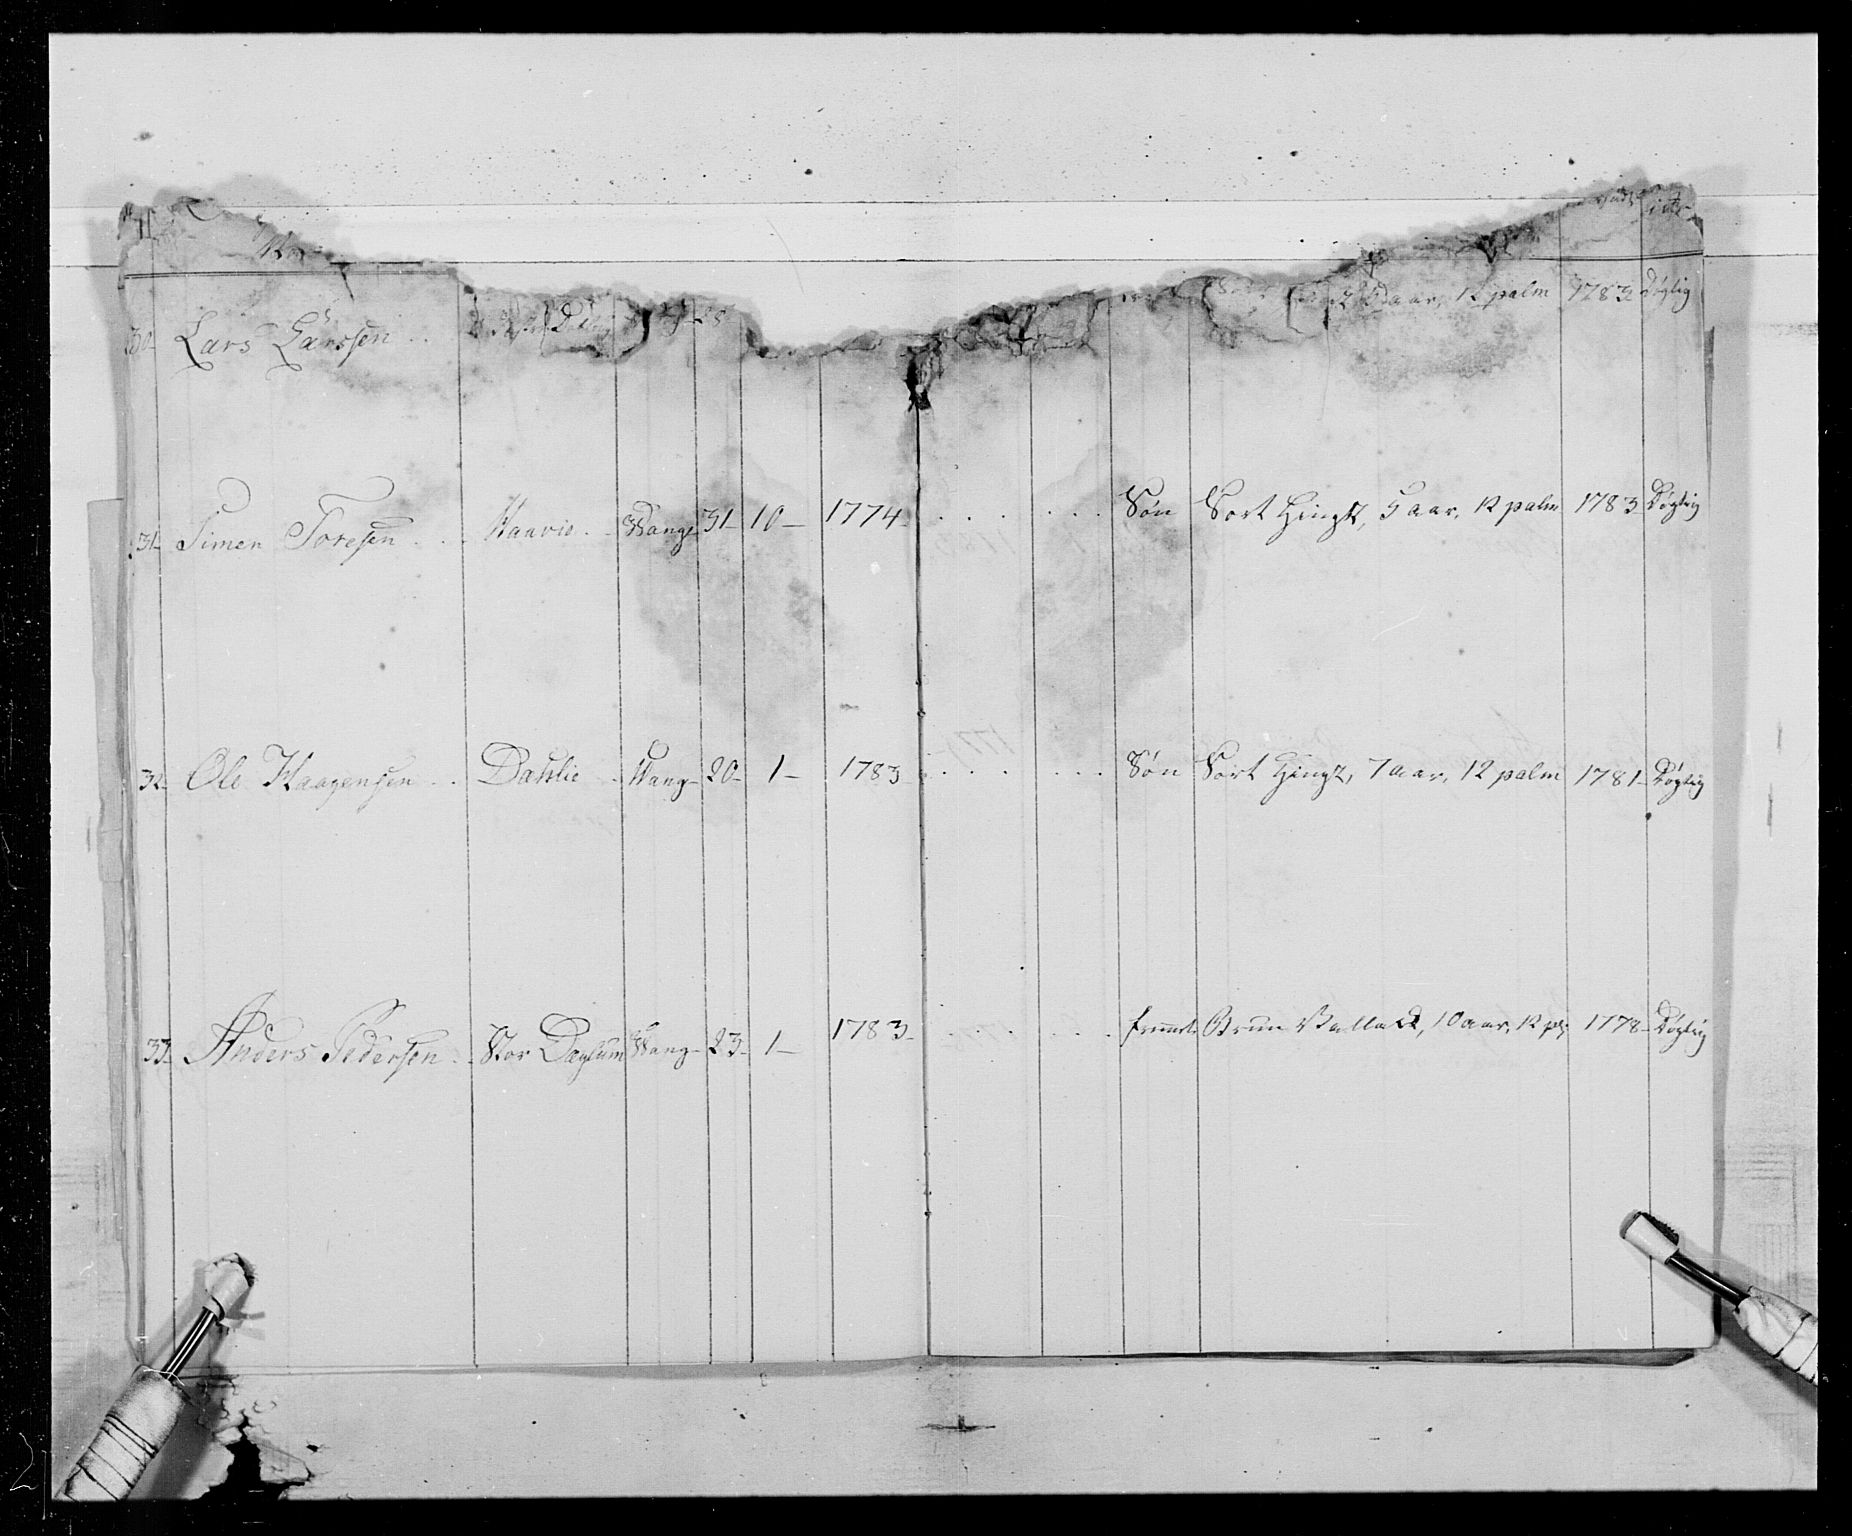 30- Lars Larssen . . 28 12 palm 1783 Døgtig
31- Simen Toresen . . . Haavie . . Wang- 31- 10- 1774- . . . . . . Søn Sort Hingst, 5 aar, 12 palm 1783- Døgtig
32- Ole Haagensen . . Dahlie . Wang- 20- 1- 1783 . . . . . . Søn Sort Hingst, 7 aar, 12 palm 1781- Døgtig
33- Anders Pedersen . . Stor Wang- 23- 1- 1783- . . . . . . fremet. Brun Vallack, 10 aar, 12 p: 1778- Døgtig